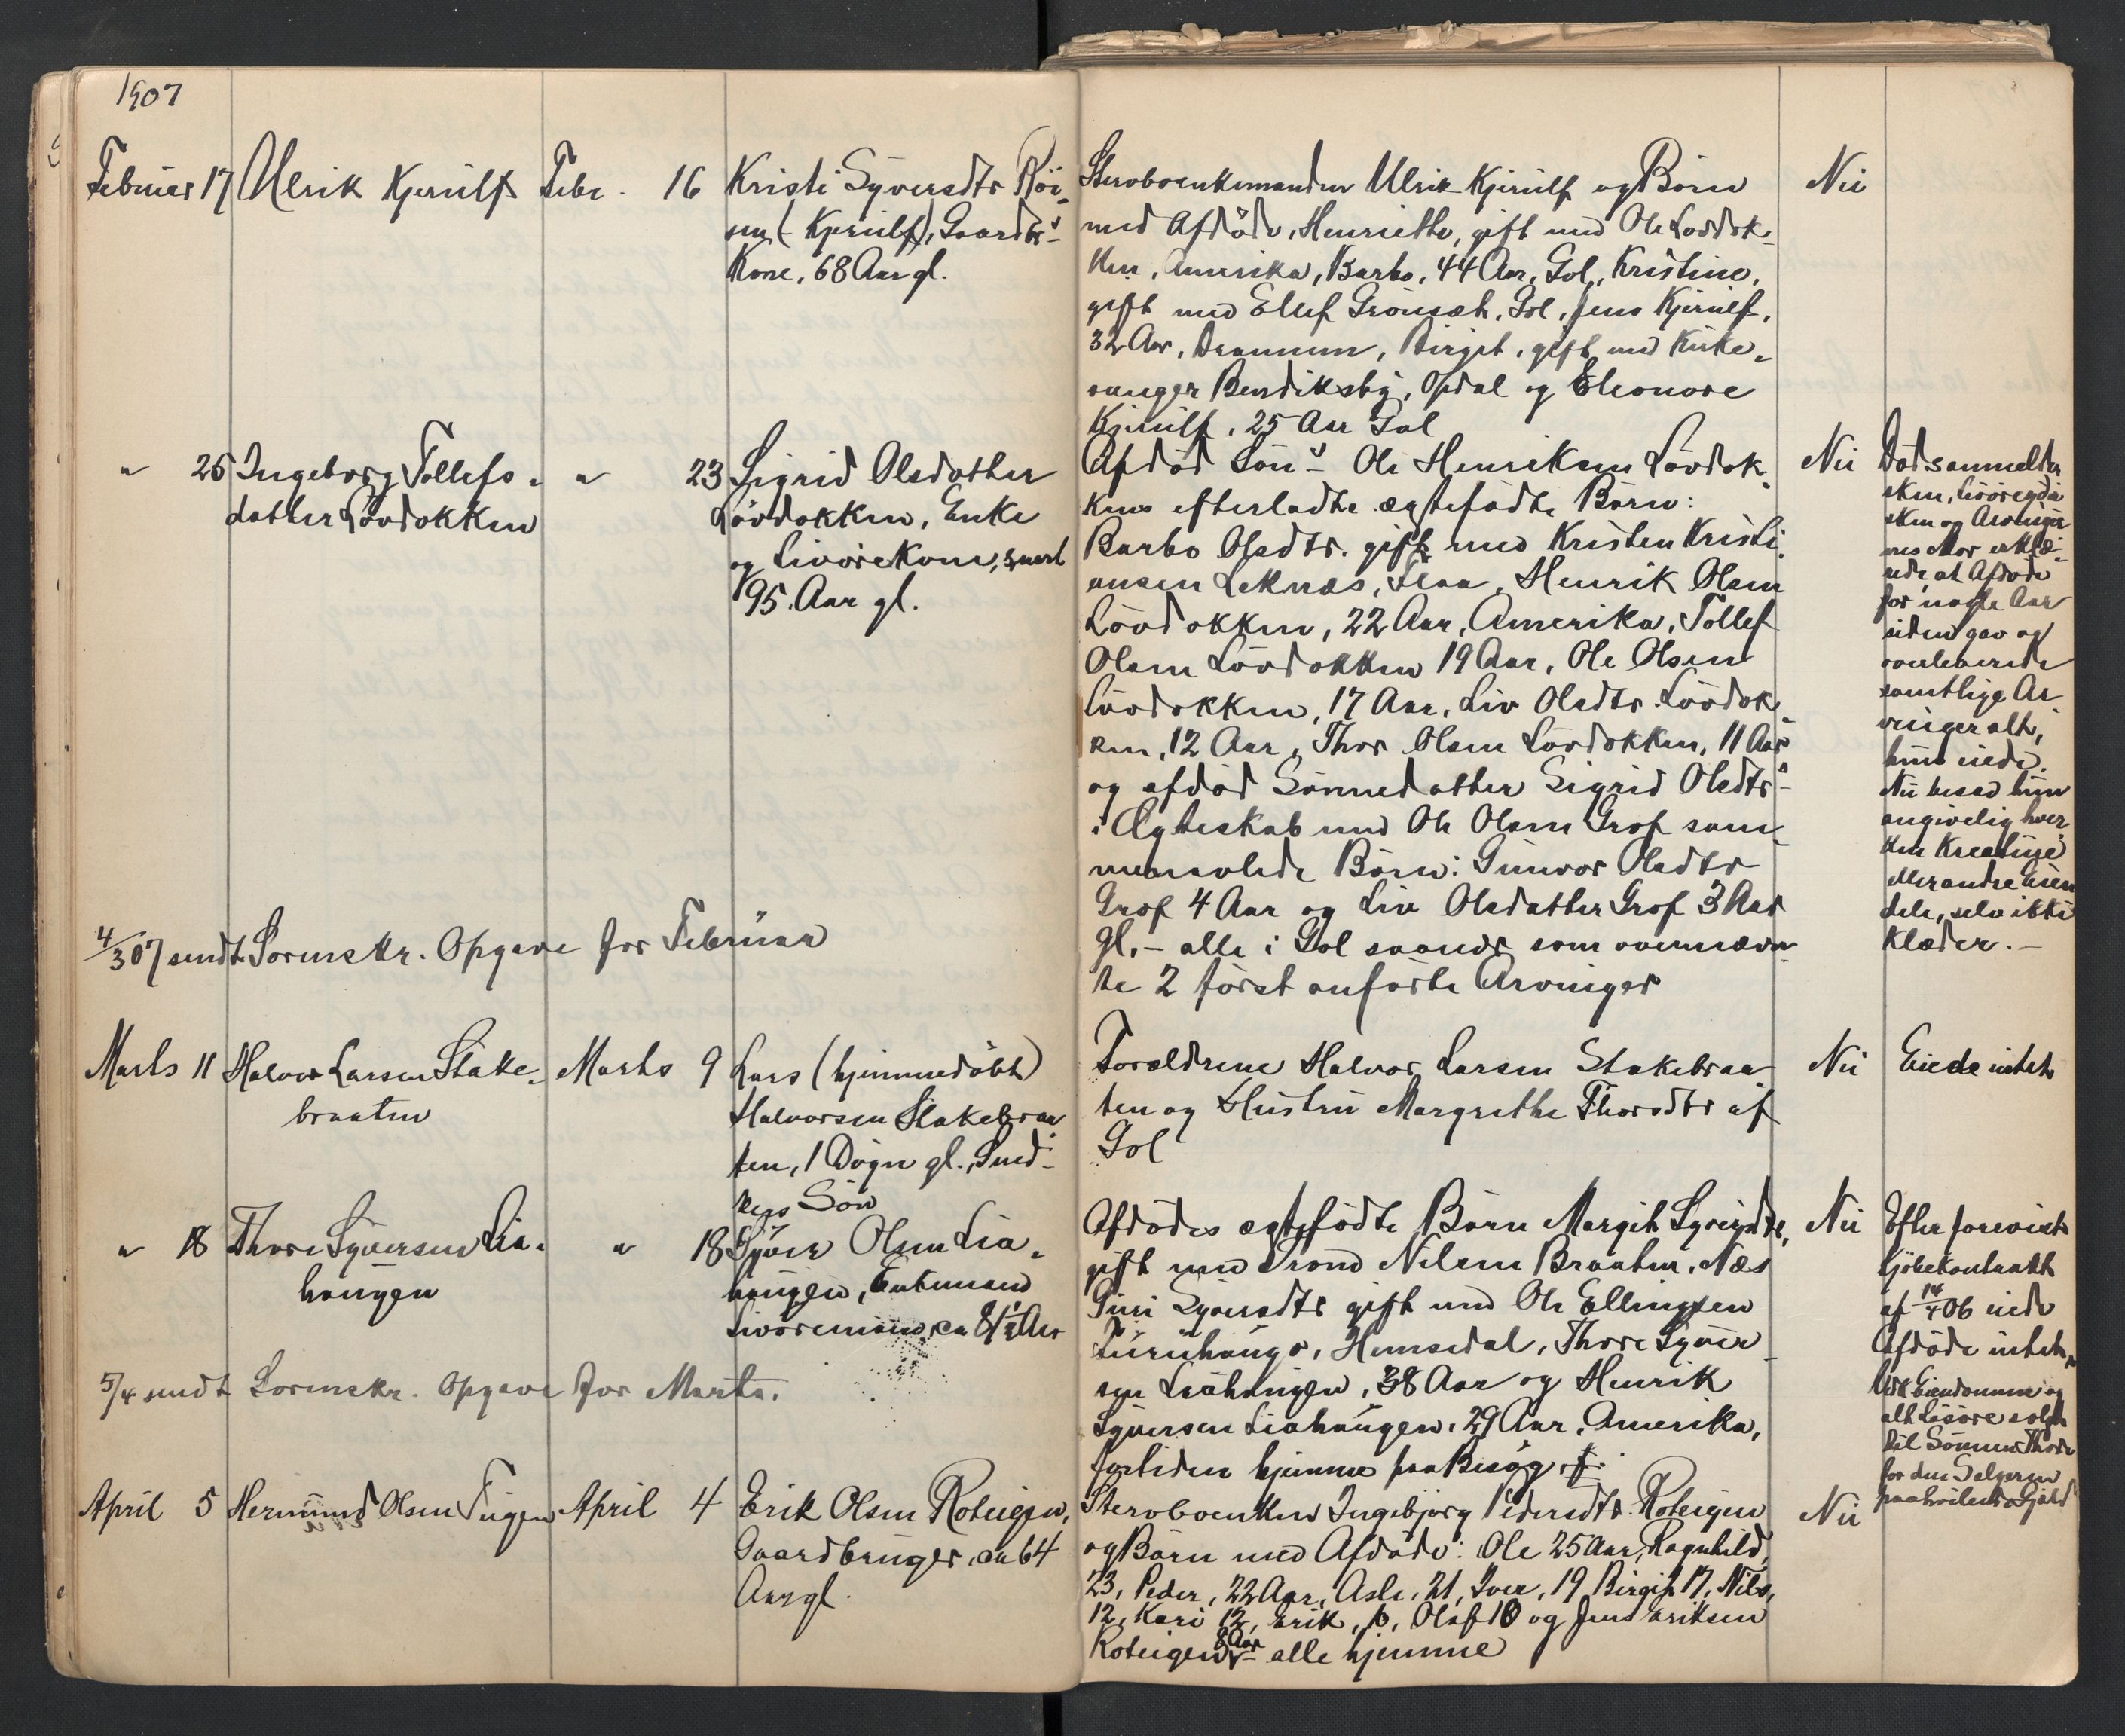 1907
Februar 17 Ulrik Kjerulf Febr. 16 Kristi Syversdtr Röi-
sen (Kjerulf), Gaardbrs
Kone, 68 Aar gl.
Sterboenkemanden Ulrik Kjerulf og Börn
med Afdöde, Henriette, gift med Ole Lövdok-
ken, Amerika, Barbo, 44 Aar, Gol, Kristine,
gift med Ellef Grönseth, Gol, Jens Kjerulf,
32 Aar, Drammen, Birgit, gift med Kirke-
sanger Bendiksby, Opdal og Eleonore
Kjerulf, 25 Aar Gol
Nei
" 25 Ingeborg Tollefs-
datter Lövdokken
" 23 Sigrid Olsdatter
Lövdokken, Enke
og Livörekone, snart
95 Aar gl.
Afdöd Söns Ole Henriksen Lövdok-
kens efterladte ægtefödte Börn:
Barbo Olsdtr. gift med Kristen Kristi-
ansen Leknæs, Flaa, Henrik Olsen
Lövdokken, 22 Aar, Amerika, Tollef
Olsen Lövdokken 19 Aar, Ole Olsen
Lövdokken, 17 Aar, Liv Olsdtr Lövdok-
ken, 12 Aar, Thor Olsen Lövdokken, 11 Aar
og afdöd Sönnedatter Sigrid Olsdtrs
i Ægteskab med Ole Olsen Grof sam-
menavlede Börn: Gunvor Olsdtr
Grof 4 Aar og Liv Olsdatter Grof 3 Aar
gl. - alle i Gol saanær som ovennævn-
te 2 först anförte Arvinger
Nei
Dödsanmelder
sken, Livöregiver
sken og Arvinger
nes Mor erklæ-
rede, at Afdöde
for nogle Aar
siden gav og
overleverede
samtlige Ar-
vinger alt,
hun eiede.
Nu besad hun
angivelig hver-
ken Kreature
eller andre Eien-
dele, selv ikke
klæder. -
4/3 07 sendt Sorenskr. Opgave for Februar
Marts 11 Halvor Larsen Stake-
braaten
Marts 9 Lars (hjemmedöbt)
Halvorsen Stakebraa-
ten, 1 Dögn gl., Smed-
kers Sön
Forældrene Halvor Larsen Stakebraa-
ten og Hustru Margrethe Thorsdtr af
Gol
Nei Eiede intet
" 18 Thore Syversen Lia-
haugen
" 18 Syver Olsen Lia-
haugen, Enkemand
Livöremand, ca 81½ Aar
Afdödes ægtefödte Börn Margit Syversdtr,
gift med Trond Nilsen Braaten, Næs
Guri Syversdtr gift med Ole Ellingsen
Turuhaugs, Hemsedal, Thore Syver-
sen Liahaugen, 38 Aar og Henrik
Syversen Liahaugen, 29 Aar, Amerika,
fortiden hjemme paa Besög.
Nei
Efter forevist
Kjöbekontrakt
af 14/4 06 eiede
Afdöde intet,
idet Eiendomme og
alt Lösöre solgt
til Sönnen Thore
for den Selgeren
paahvilende Gjæld
5/4 sendt Sorenskr. Opgave for Marts.
April 5 Hermund Olsen Tugen April 4 Erik Olsen Roteigen,
Gaardbruger, ca 64
Aar gl.
Sterboenken Ingebjörg Pedersdtr. Roteigen
og Börn med Afdöde: Ole 25 Aar, Ragnhild,
23, Peder, 22 Aar, Asle, 21, Iver, 19 Birgit 17, Nils,
12, Kari 12, Erik, Olaf 10 og Jens Eriksen
Roteigen 8 Aar - alle hjemme
Nei